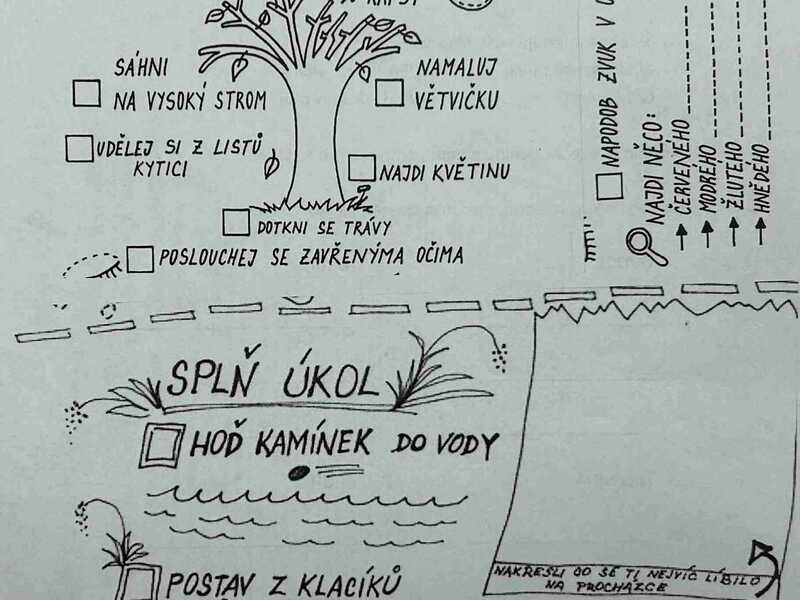 SÁHNI
NA VYSOKÝ STROM
NAMALUJ
VĚTVIČKU
UDĚLEJ SI Z LISTŮ
KYTICI
NAJDI KVĚTINU
DOTKNI SE TRÁVY
POSLOUCHEJ SE ZAVŘENÝMA OČIMA
NAPODOB ZVUK V
NAJDI NĚCO:
ČERVENÉHO
MODRÉHO
ŽLUTÉHO
HNĚDÉHO
SPLŇ ÚKOL
HOĎ KAMÍNEK DO VODY
POSTAV Z KLACÍKŮ
NAKRESLI CO SE TI NEJVÍC LÍBILO
NA PROCHÁZCE